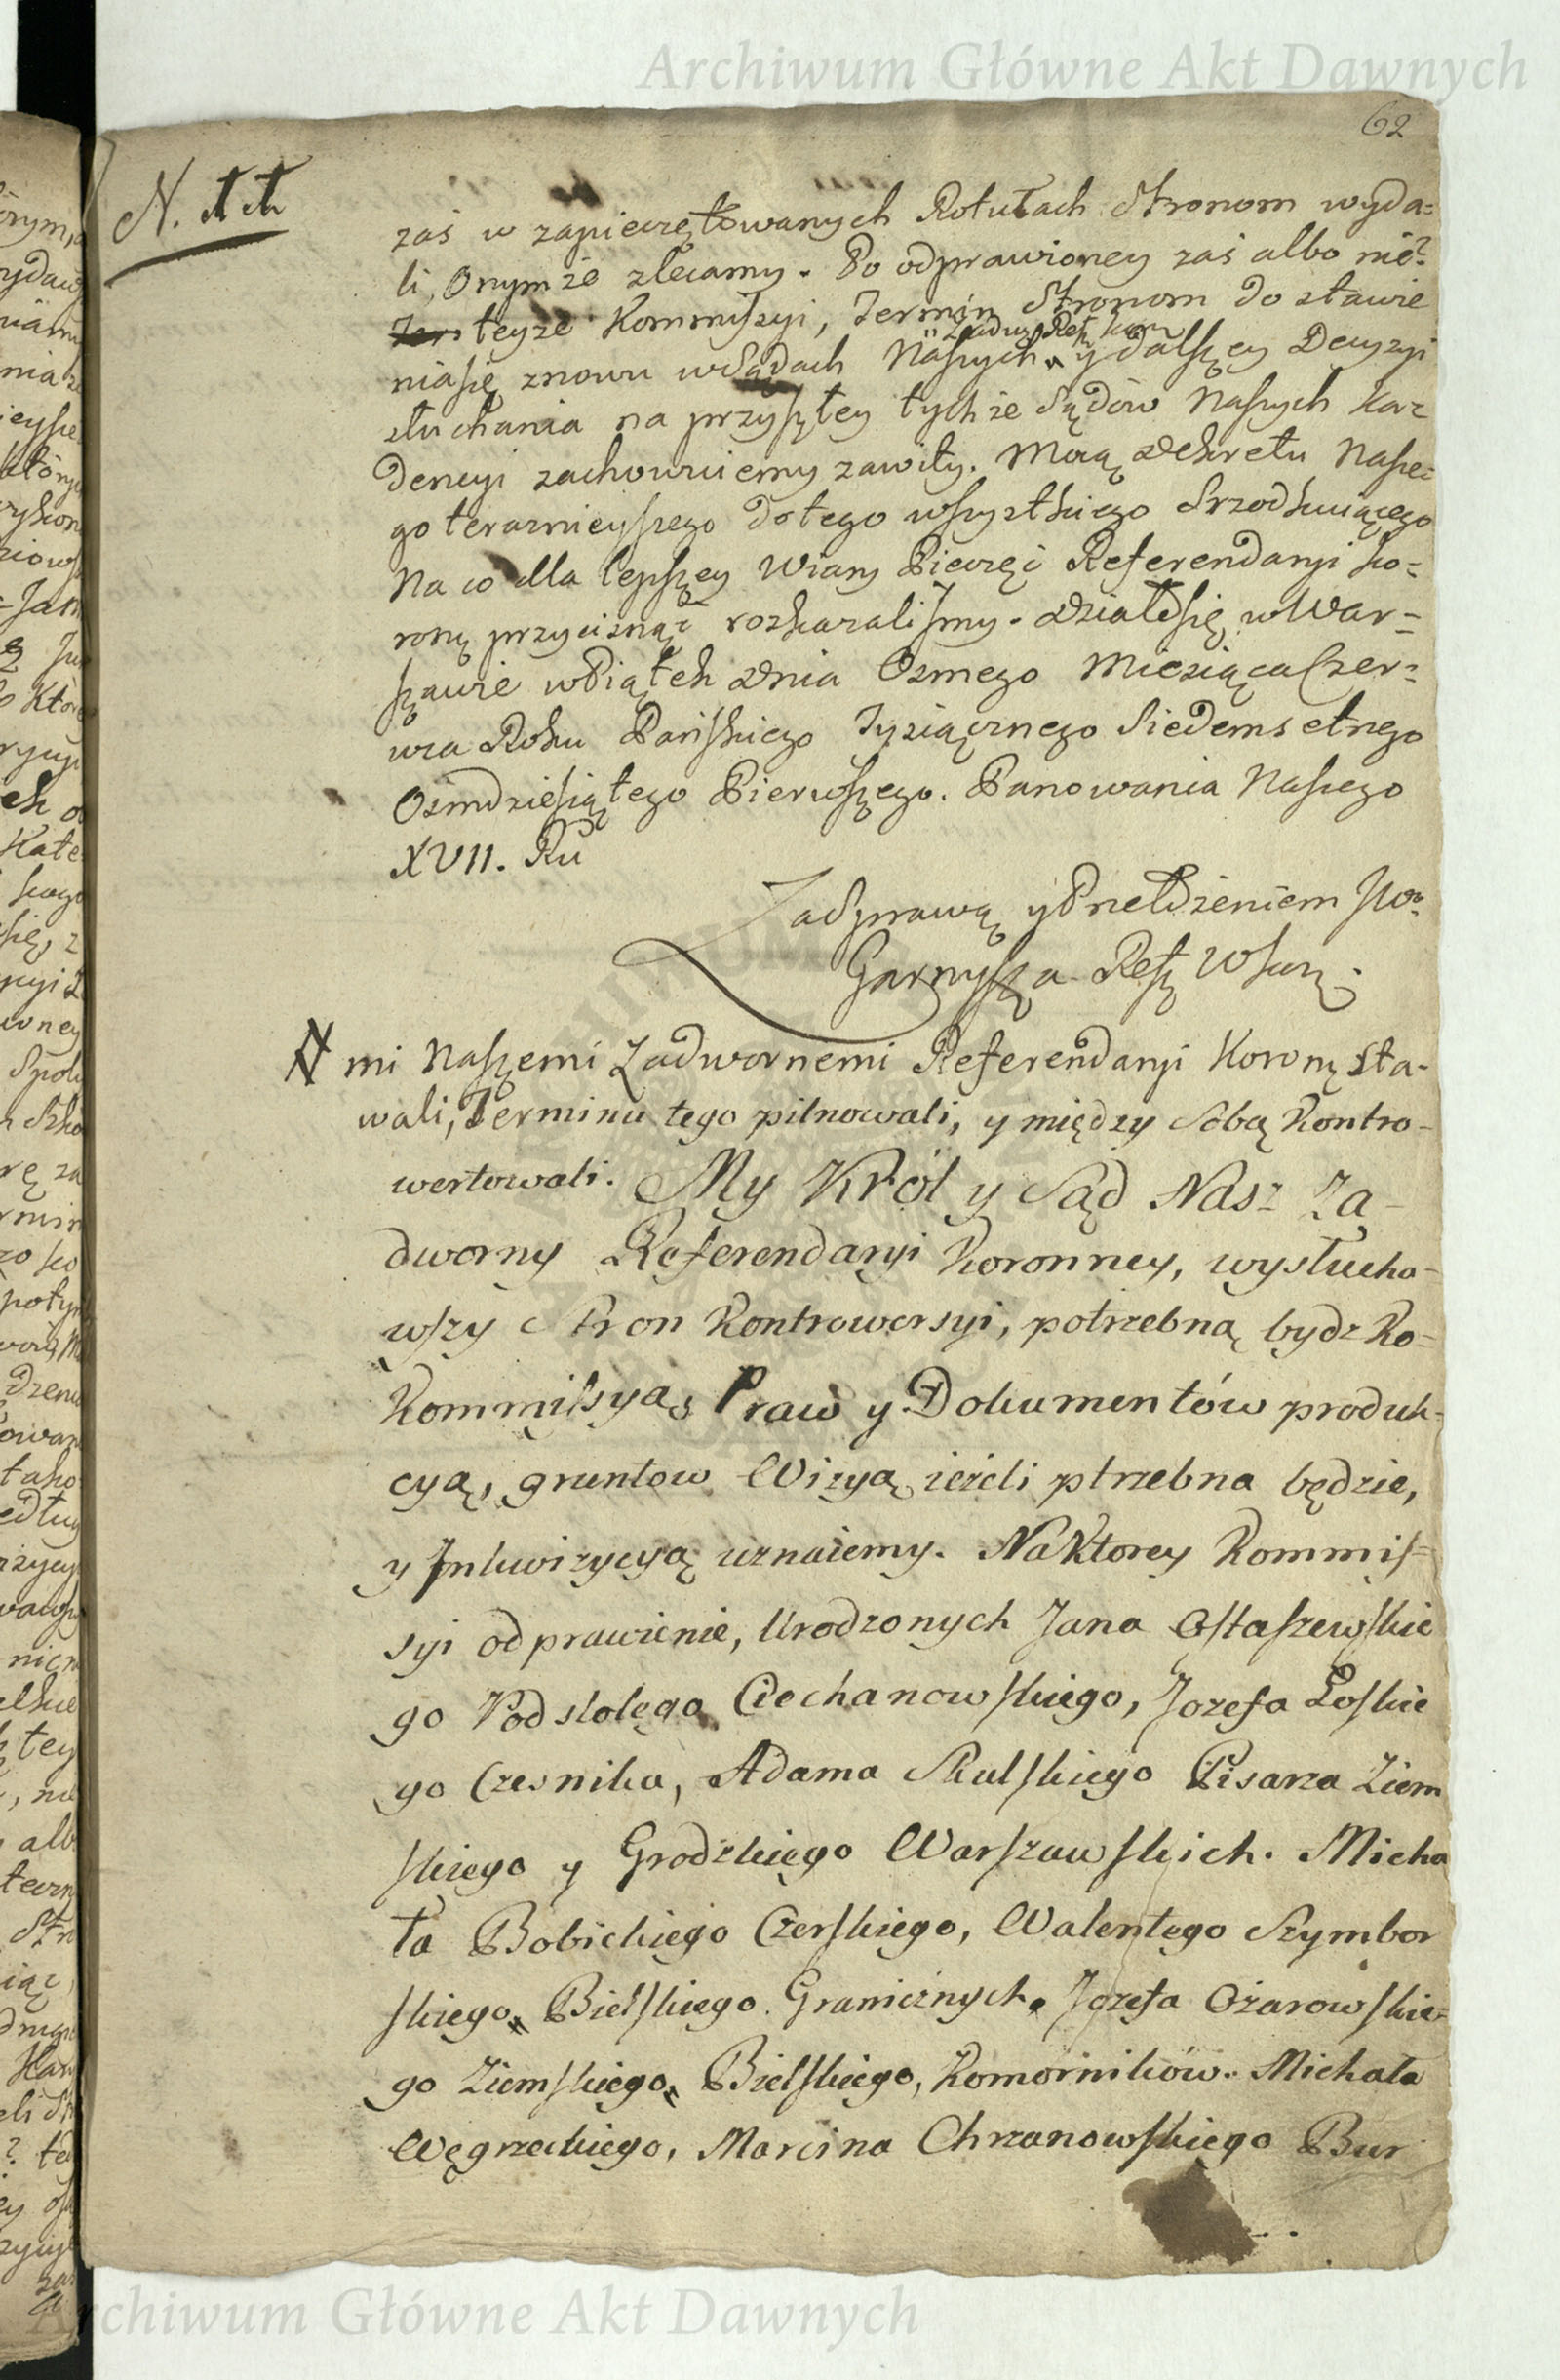 Archiwum Główne Akt Dawnych
62
zaś w zapieczętowanych Rotułach Stronom wyda=
li, Onymże zlecamy. Po odprawioney zaś albo nie?
teyże Kommiszyi, Termin Stronom do stawie
Zadw: Reff: Kor:
niasię znowu wSądach Naszych y dalszey Decyzyi
słuchania na przyszłey tychże Sądów Naszych Ka=
dencyi zachowuiemy zawity. Mocą Dekretu Nasze=
go teraznieyszego do tego wszystkiego Srzodkuiącego
Na co dla lepszey Wiary Pieczęć Referendaryi Ko=
ronq przycisnąć rozkazaliśmy. Działosię w War=
szawie wPiątek Dnia Osmego Miesiąca Czer=
wca Roku Pańskiego Tysiącznego Siedemsetnego
Osmdziesiątego Pierwszego. Panowania Naszego
XVII. Ru
Zasprawą y
Garnysza Reff W Kor:
mi Naszemi Zadwornemi Referendaryi Koronq sta-
wali, Terminu tego pilnowali, y między Sobą Kontro-
wertowali. My Król y Sąd Nasz Za-
dworny Referendaryi Koronney, wysłucha-
wszy Stron Kontrowersyi, potrzebną bydz Ko-
Kommissyą, Praw y Dokumentów produk=
cyą, gruntow Wizyą ieżeli ptrzebna będzie,
y Inkwizycyą uznaiemy. Na Ktorey Kommis=
syi odprawienie, Urodzonych Jana Ostaszewskie
go Podstolego Ciechanowskiego, Jozefa Loskie
go Czesnika, Adama Skulskiego Pisarza Ziem
skiego y Grodzkiego Warszawskich. Micha
ła Bobickiego Czerskiego, Walentego Szymbor
skiego, Bielskiego Granicznych, Jozefa Ożarowskie=
go Ziemskiego, Bielskiego, Komorników. Michała
Węgrzeckiego, Marcina Chrzanowskiego Bur
Archiwum Główne Akt Dawnych